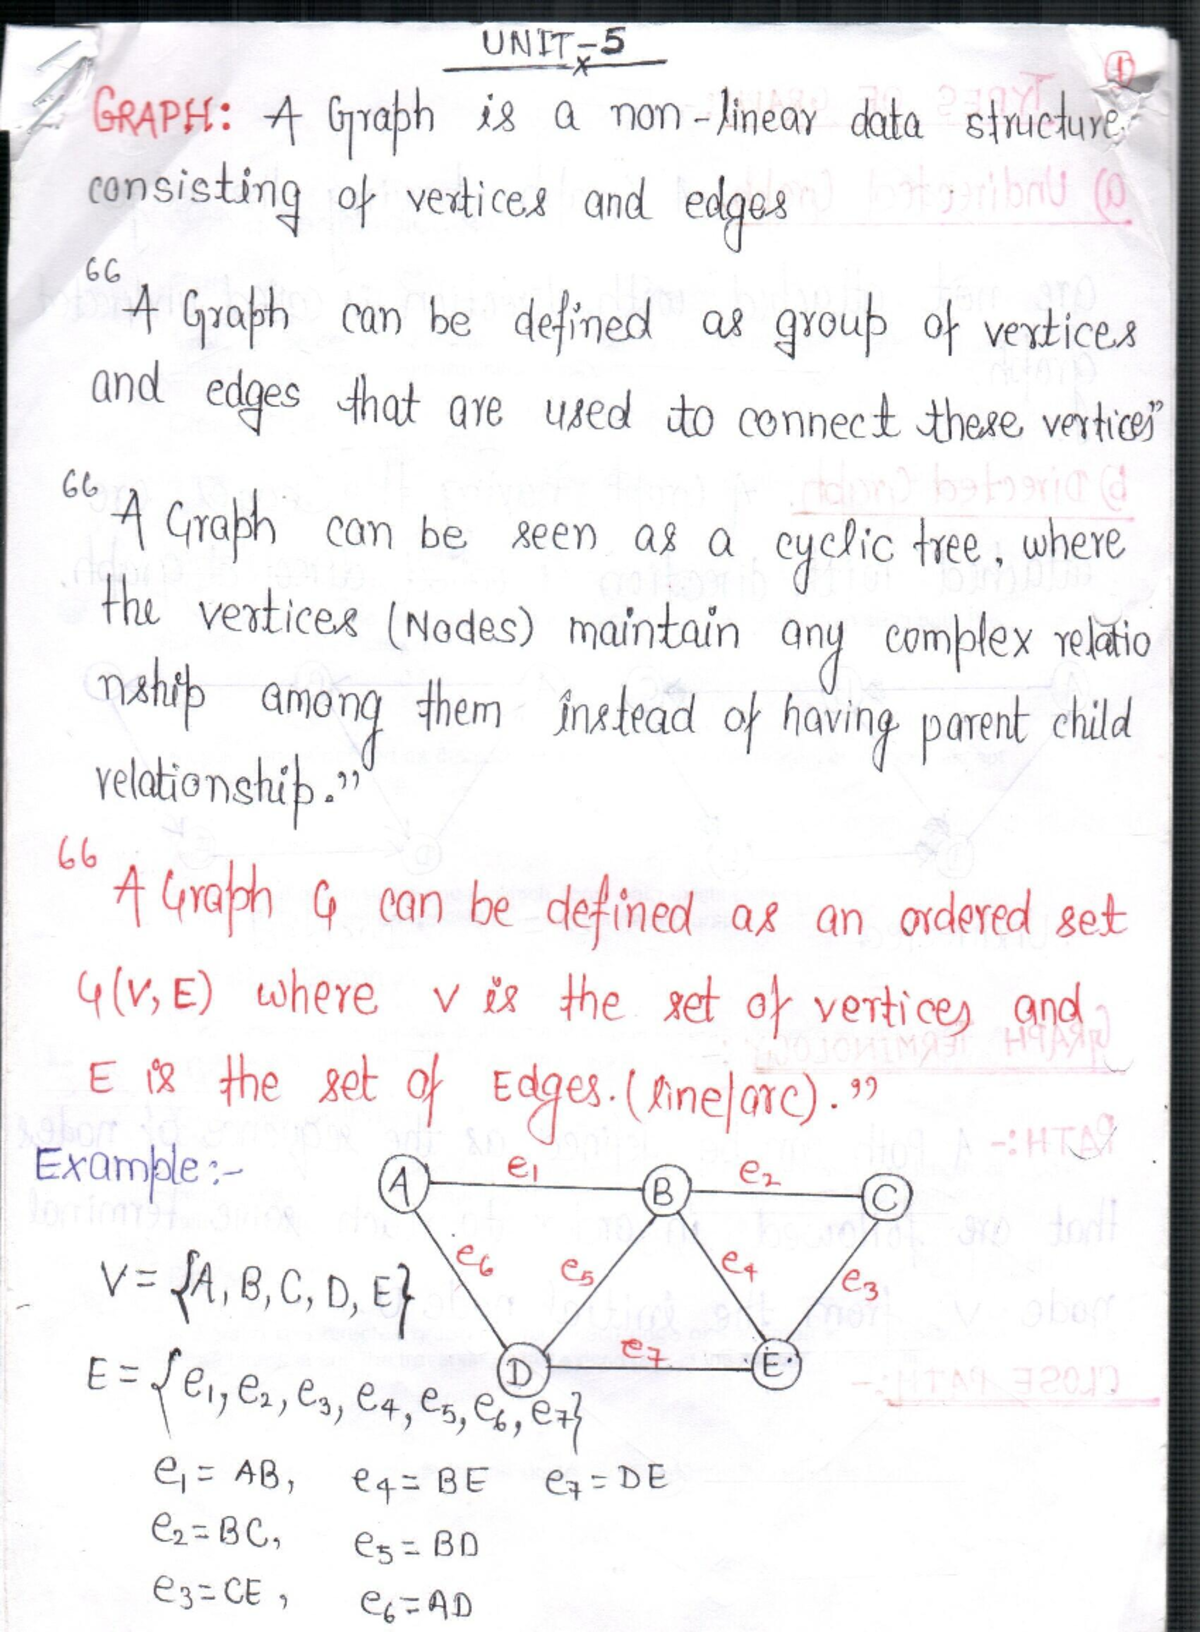 UNIT-5
1
GRAPH: A Graph is a non-linear data structure
consisting of vertices and edges
“A Graph can be defined as group of vertices
and edges that are used to connect these vertices”
“A Graph can be seen as a cyclic tree, where
the vertices (Nodes) maintain any complex relatio
nship among them instead of having parent child
relationship.”
“A Graph G can be defined as an ordered set
G(V, E) where V is the set of vertices and
E is the set of Edges. (line/arc).”
Example:-
A e1 B e2 C
e6 e5 e4 e3
D e7 E
V = {A, B, C, D, E}
E = {e1, e2, e3, e4, e5, e6, e7}
e1 = AB, e4 = BE e7 = DE
e2 = BC, e5 = BD
e3 = CE, e6 = AD